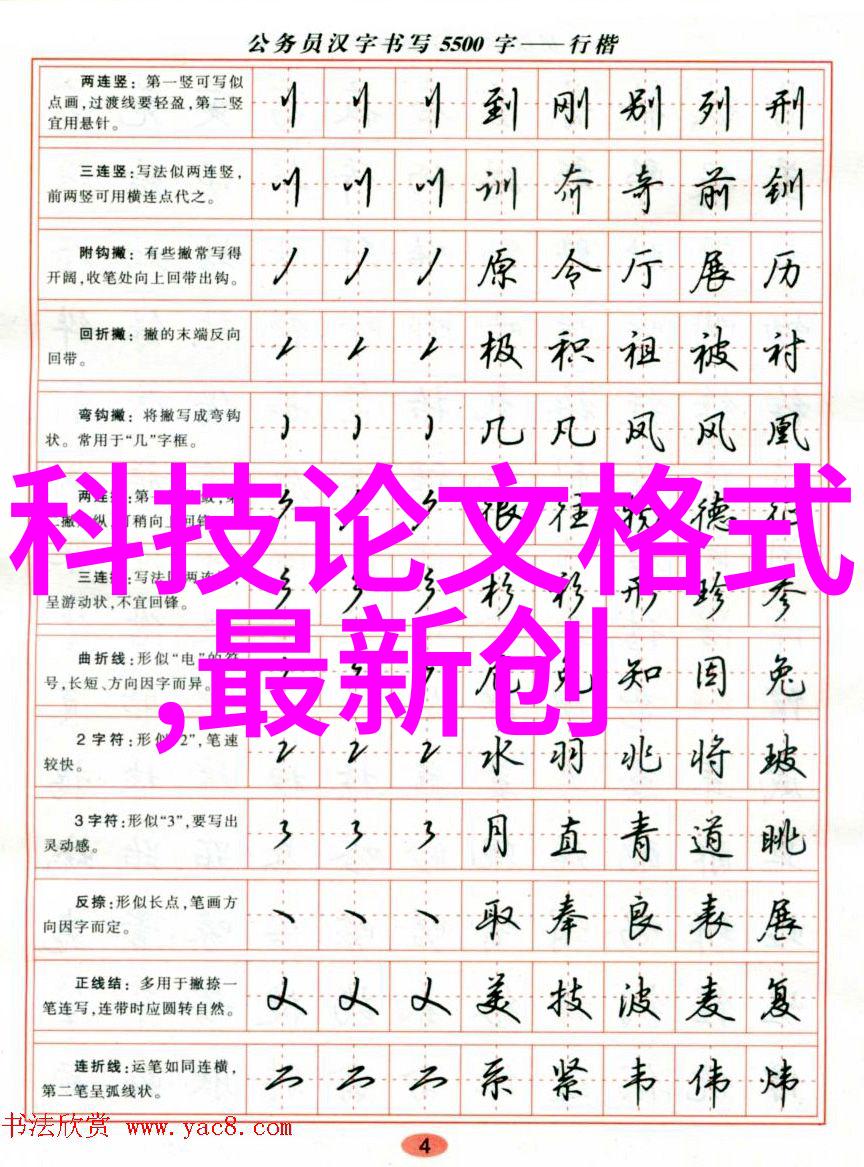 公务员汉字书写5500字——行楷
两连竖：第一竖可写似
点画，过渡线要轻盈，第二竖
宜用悬针。
到 刚 别 列 刑
三连竖：写法似两连竖，
前两竖可用横连点代之。
训 奔 奇 前 钏
附钩撇：有些撇常写得
开阔，收笔处向上回带出钩。
原 令 厅 展 历
回折撇：撇的末端反向
回带。
极 积 祖 被 衬
弯钩撇：将撇写成弯钩
状。常用于“几”字框。
几 凡 凤 风 凰
科技论文格式
,最新创
很 往 德
三连
呈游动状，不宜回锋。
杉 衫 形 珍 参
曲折线：形似“电”的
号，长短、方向因字而异。
免 知 因 兔
2字符：形似“2”，笔速
较快。
2 2 2 水 羽 兆 将 玻
3字符：形似“3”，要写出
灵动感。
3 3 3 月 直 青 道 眺
反捺：形似长点，笔画方
向因字而定。
取 奉 良 表 展
正线结：多用于撇捺一
笔连写，连带时应圆转自然。
美 技 波 麦 复
连折线：运笔如同连横，
第二笔呈弧线状。
系 紧 韦 伟 炜
书法欣赏 www.yac8.com
4